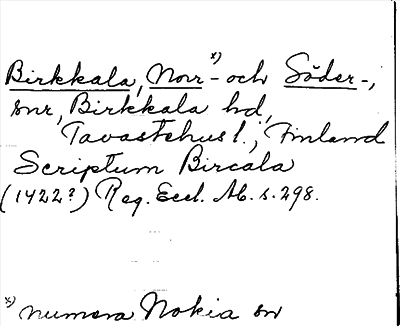 Birkkala, Norr-x) och Söder-,
snr, Birkkala hd,
Tavastehus l., Finland
Scriptum Bircala
(1422?) Reg. Eccl. Ab. s. 298.
x) numera Nokia sn